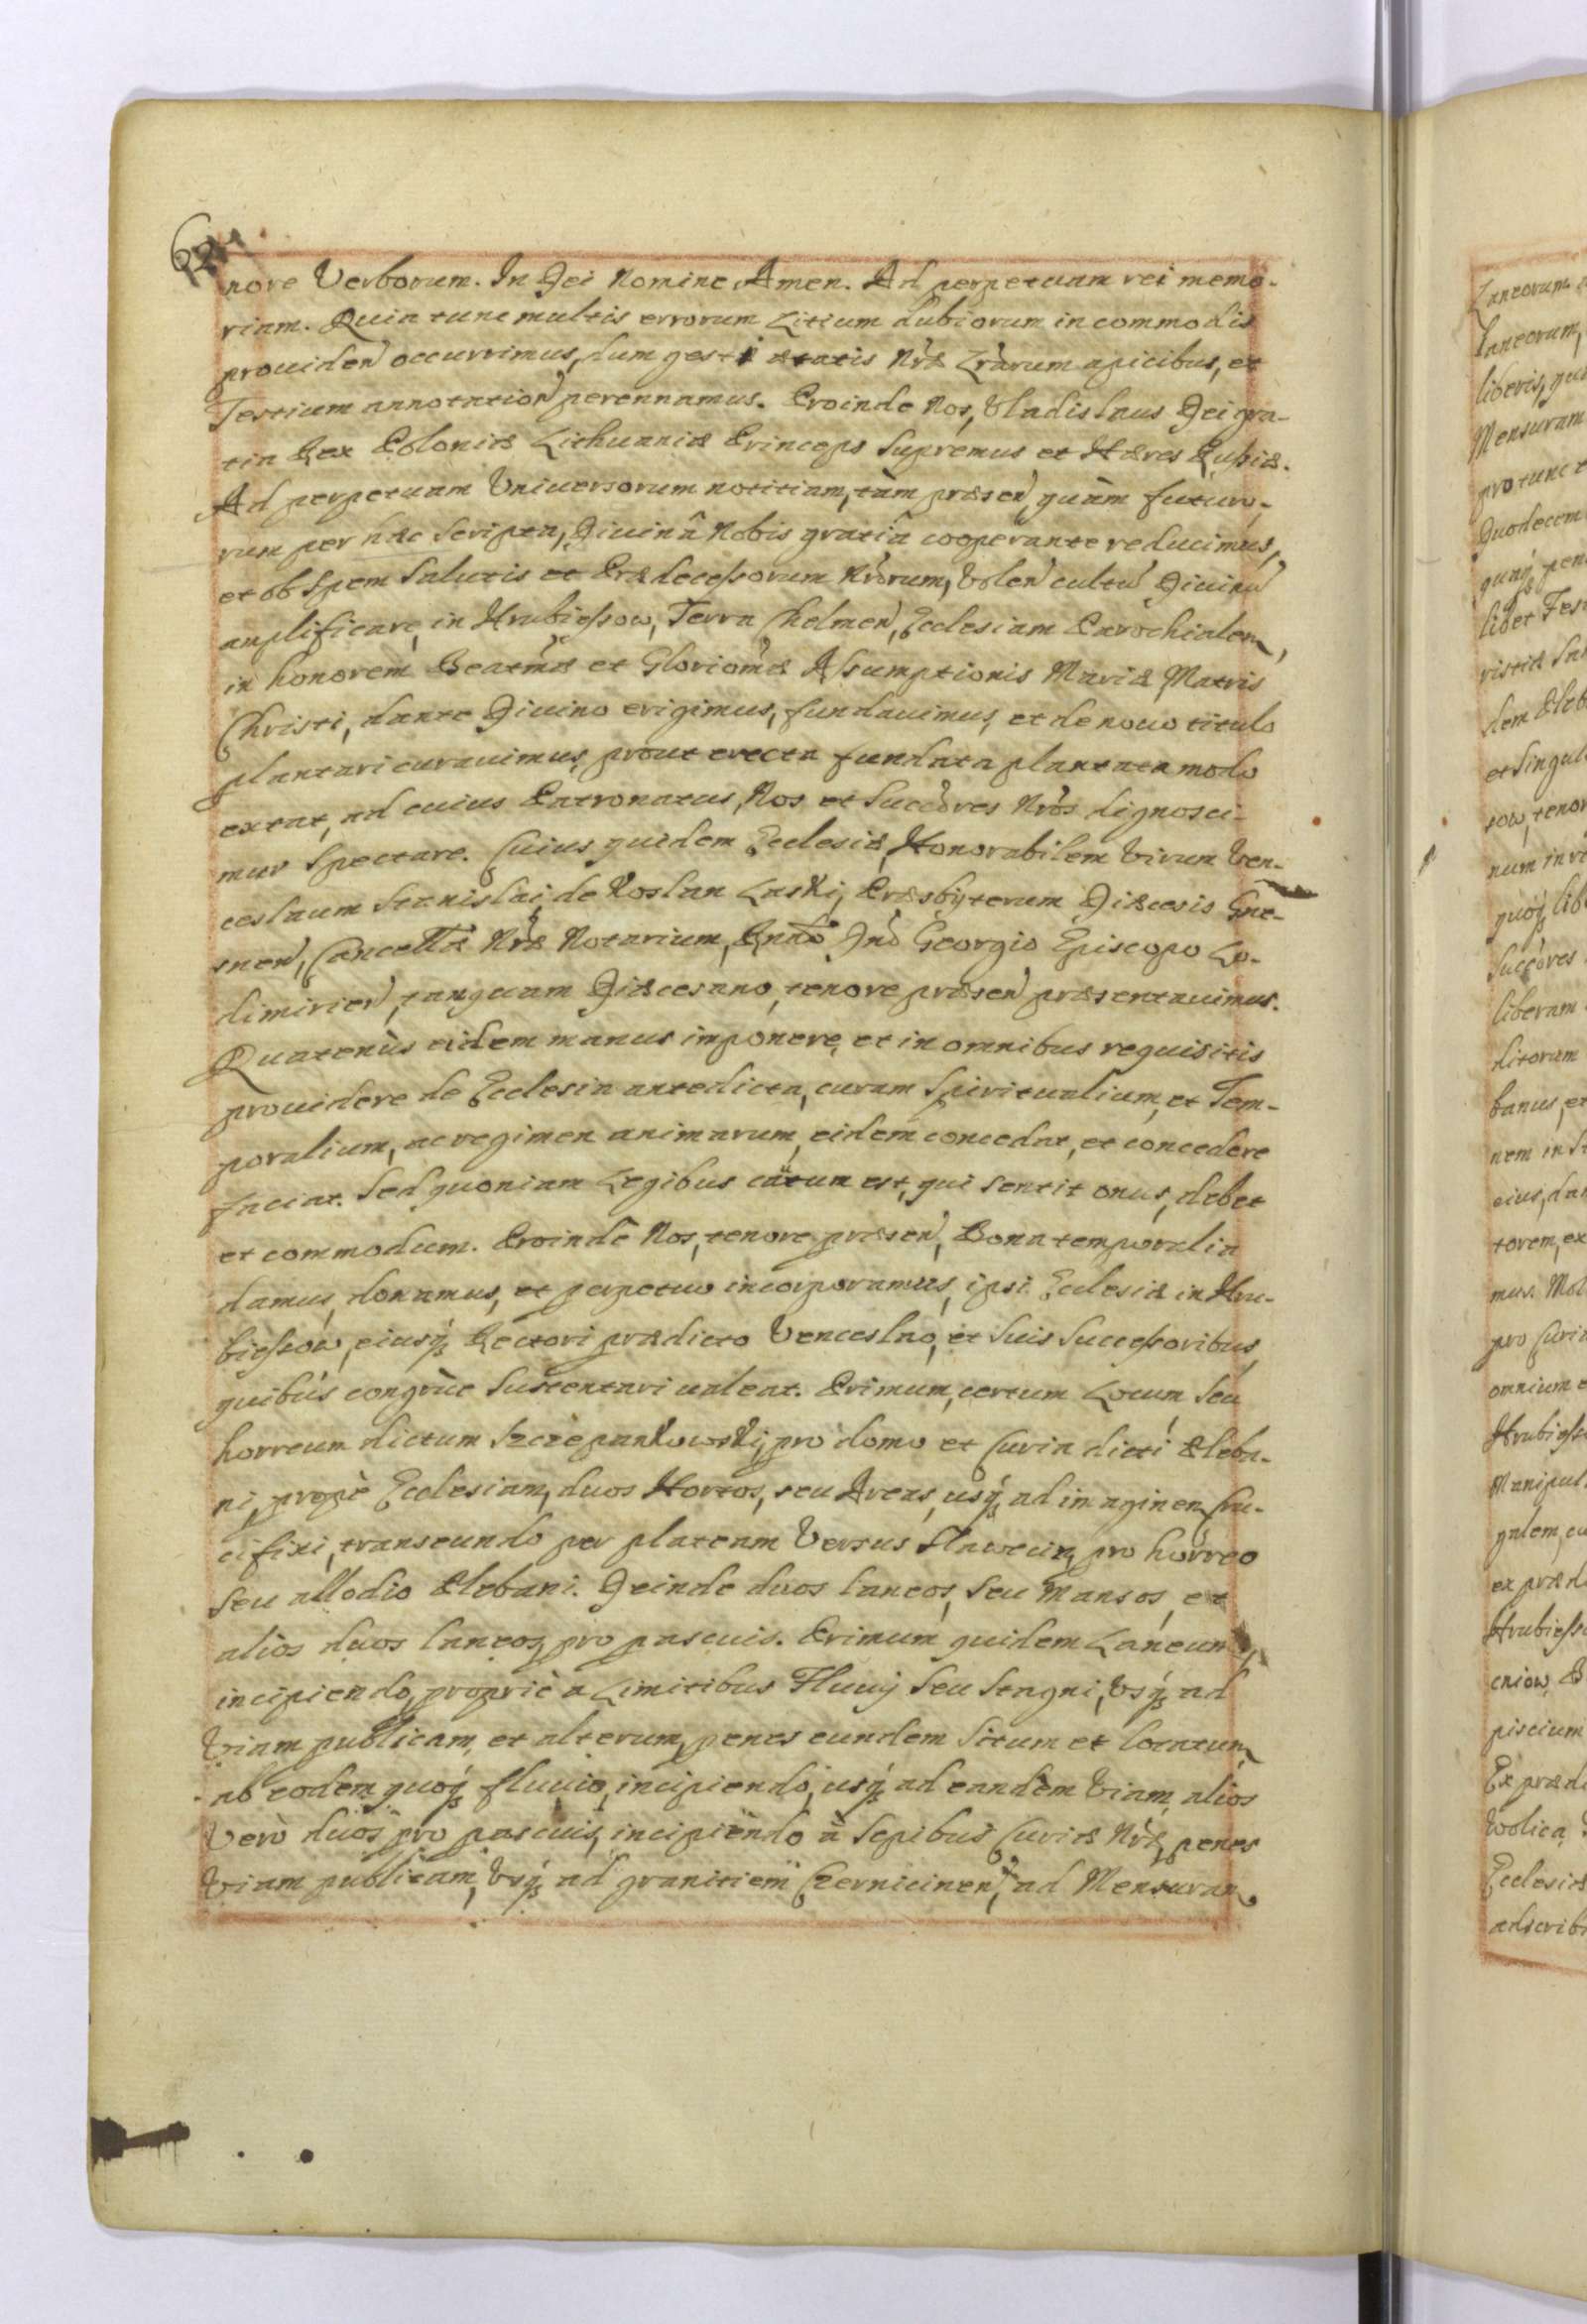 62
nore Verborum. In Dei Nomine Amen. Ad perpetuam rei memo-
riam. Quia tunc multis errorum Litium dubiorum incommodis
prouiden occurrimus, dum gesti ætatis Nræ Lrarum apicibus, et
Testium annotation perennamus. Proinde Nos, Vladislaus Dei gra-
tia Rex Poloniæ Lithuaniæ Princeps Supremus et Hæres Russiæ.
Ad perpetuam Vniuersorum notitiam, tàm præsen, quàm futuro-
rum per hæc scripta, Diuinâ Nobis gratiâ cooperante reducimus,
et ob Spem Salutis et Prædecessorum Nrorum, Volen cultu Diuinu
amplificare, in Hrubiessow, Terra Chelmen, Ecclesiam Parochialem,
in honorem Beatmæ et Gloriomæ Assumptionis Mariæ Matris
Christi, dante Diuino erigimus, fundauimus, et de nouo titulo
plantari curauimus, prout erecta fundata plantata modo
extat, ad cuius Patronatus, Nos et Succores Nros dignosci-
mur Spectare. Cuius quidem Ecclesiæ, Honorabilem Virum Ven-
ceslaum Stanislai, de Koslan Laski, Præsbyterum Diæcesis Gne-
snen, Cancellæ Nræ Notarium, Rndo Dno Georgio Episcopo Lo-
dimirien, tanquam Diæcesano, tenore præsen præsentauimus.
Quatenùs eidem manus imponere, et in omnibus requisitis
prouidere de Ecclesia antedicta, curam Spiritualium, et Tem-
poralium, ac regimen animarum, eidem concedat, et concedere
faciat. Sed quoniam Legibus cautum est, qui sentit onus, debet
et commodum. Proinde Nos, tenore præsen, Bona temporalia
damus, donamus, et perpetuo incorporamus, ipsi Ecclesiæ in Hru-
biessow, eiusq Rectori prædicto Venceslao, et Suis Successoribus,
quibus congruè Sustentari ualeat. Primum, certum Locum seu
horreum dictum Szczepankowski, pro domo et Curia dicti Pleba-
ni, propè Ecclesiam, duos Hortos, seu Areas, usq ad imaginem Cru-
cifixi, transeundo per plateam Versus Slawecin, pro horreo
seu allodio Plebani. Deinde duos laneos, seu Mansos, et
alios duos laneos, pro pascuis. Primum quidem Laneum,
incipiendo, propriè a Limitibus Fluuij Seu Stagni, Vsq ad
Viam publicam, et alterum, penes eundem Situm et locatum,
ab eodem quoq fluuio, incipiendo, usq ad eandem Viam, alios
Verò duos pro pascuis, incipiendo à Sepibus Curiæ Nræ, penes
Viam publicam, Vsq ad granitiem Czernicinen, ad Mensuram